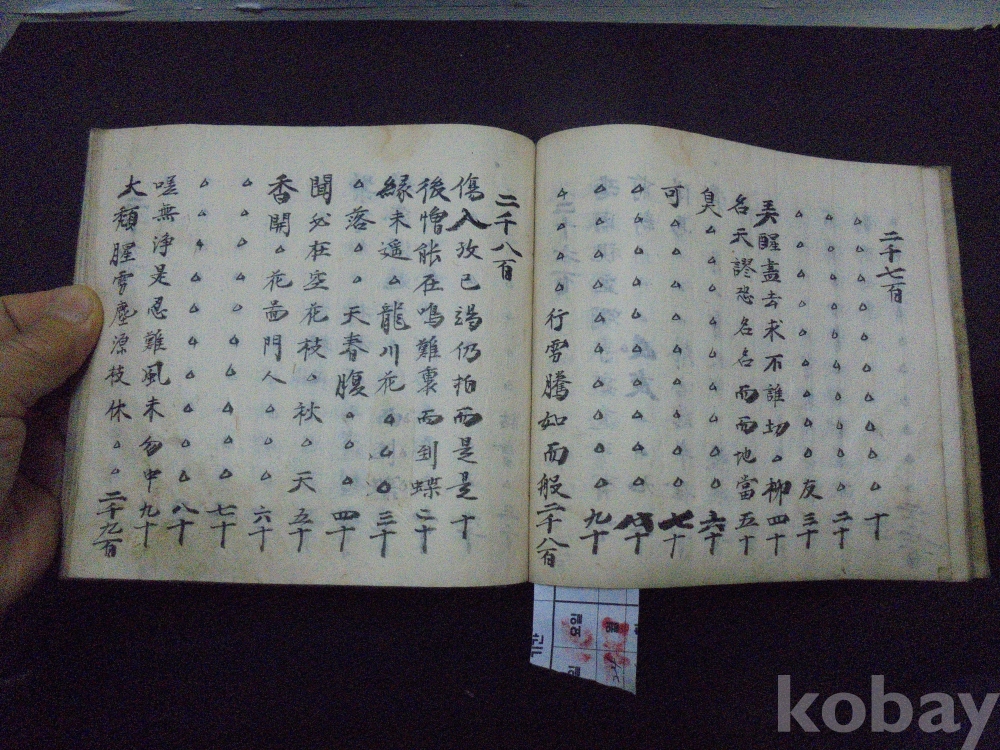 二千七百
△△△△△△△△十
△△△△△△△△△二十
△△△△△△△友三十
美醒盡去求不誰切△柳四十
名天謬恐名名而而地當五十
臭△△△△△△△△六十
可△△△△△△△△七十
△△△△△△△△△八十
△△△△△△△△△九十
△△△△行雪騰如而般二千八百
二千八百
傷入攻已竭仍拍而是是十
後憎能在鳴難裏而到蝶二十
緣未遥△龍川花△△△三十
△落△△天春腹△△△四十
聞必在空花枝△秋△天五十
香開△花出門人△△△六十
△△△△△△△△△七十
△△△△△△△△△八十
嗟無淨是忍難風未勿中九十
大頹腥雪塵源枝休△△二千九百
요일
kobay